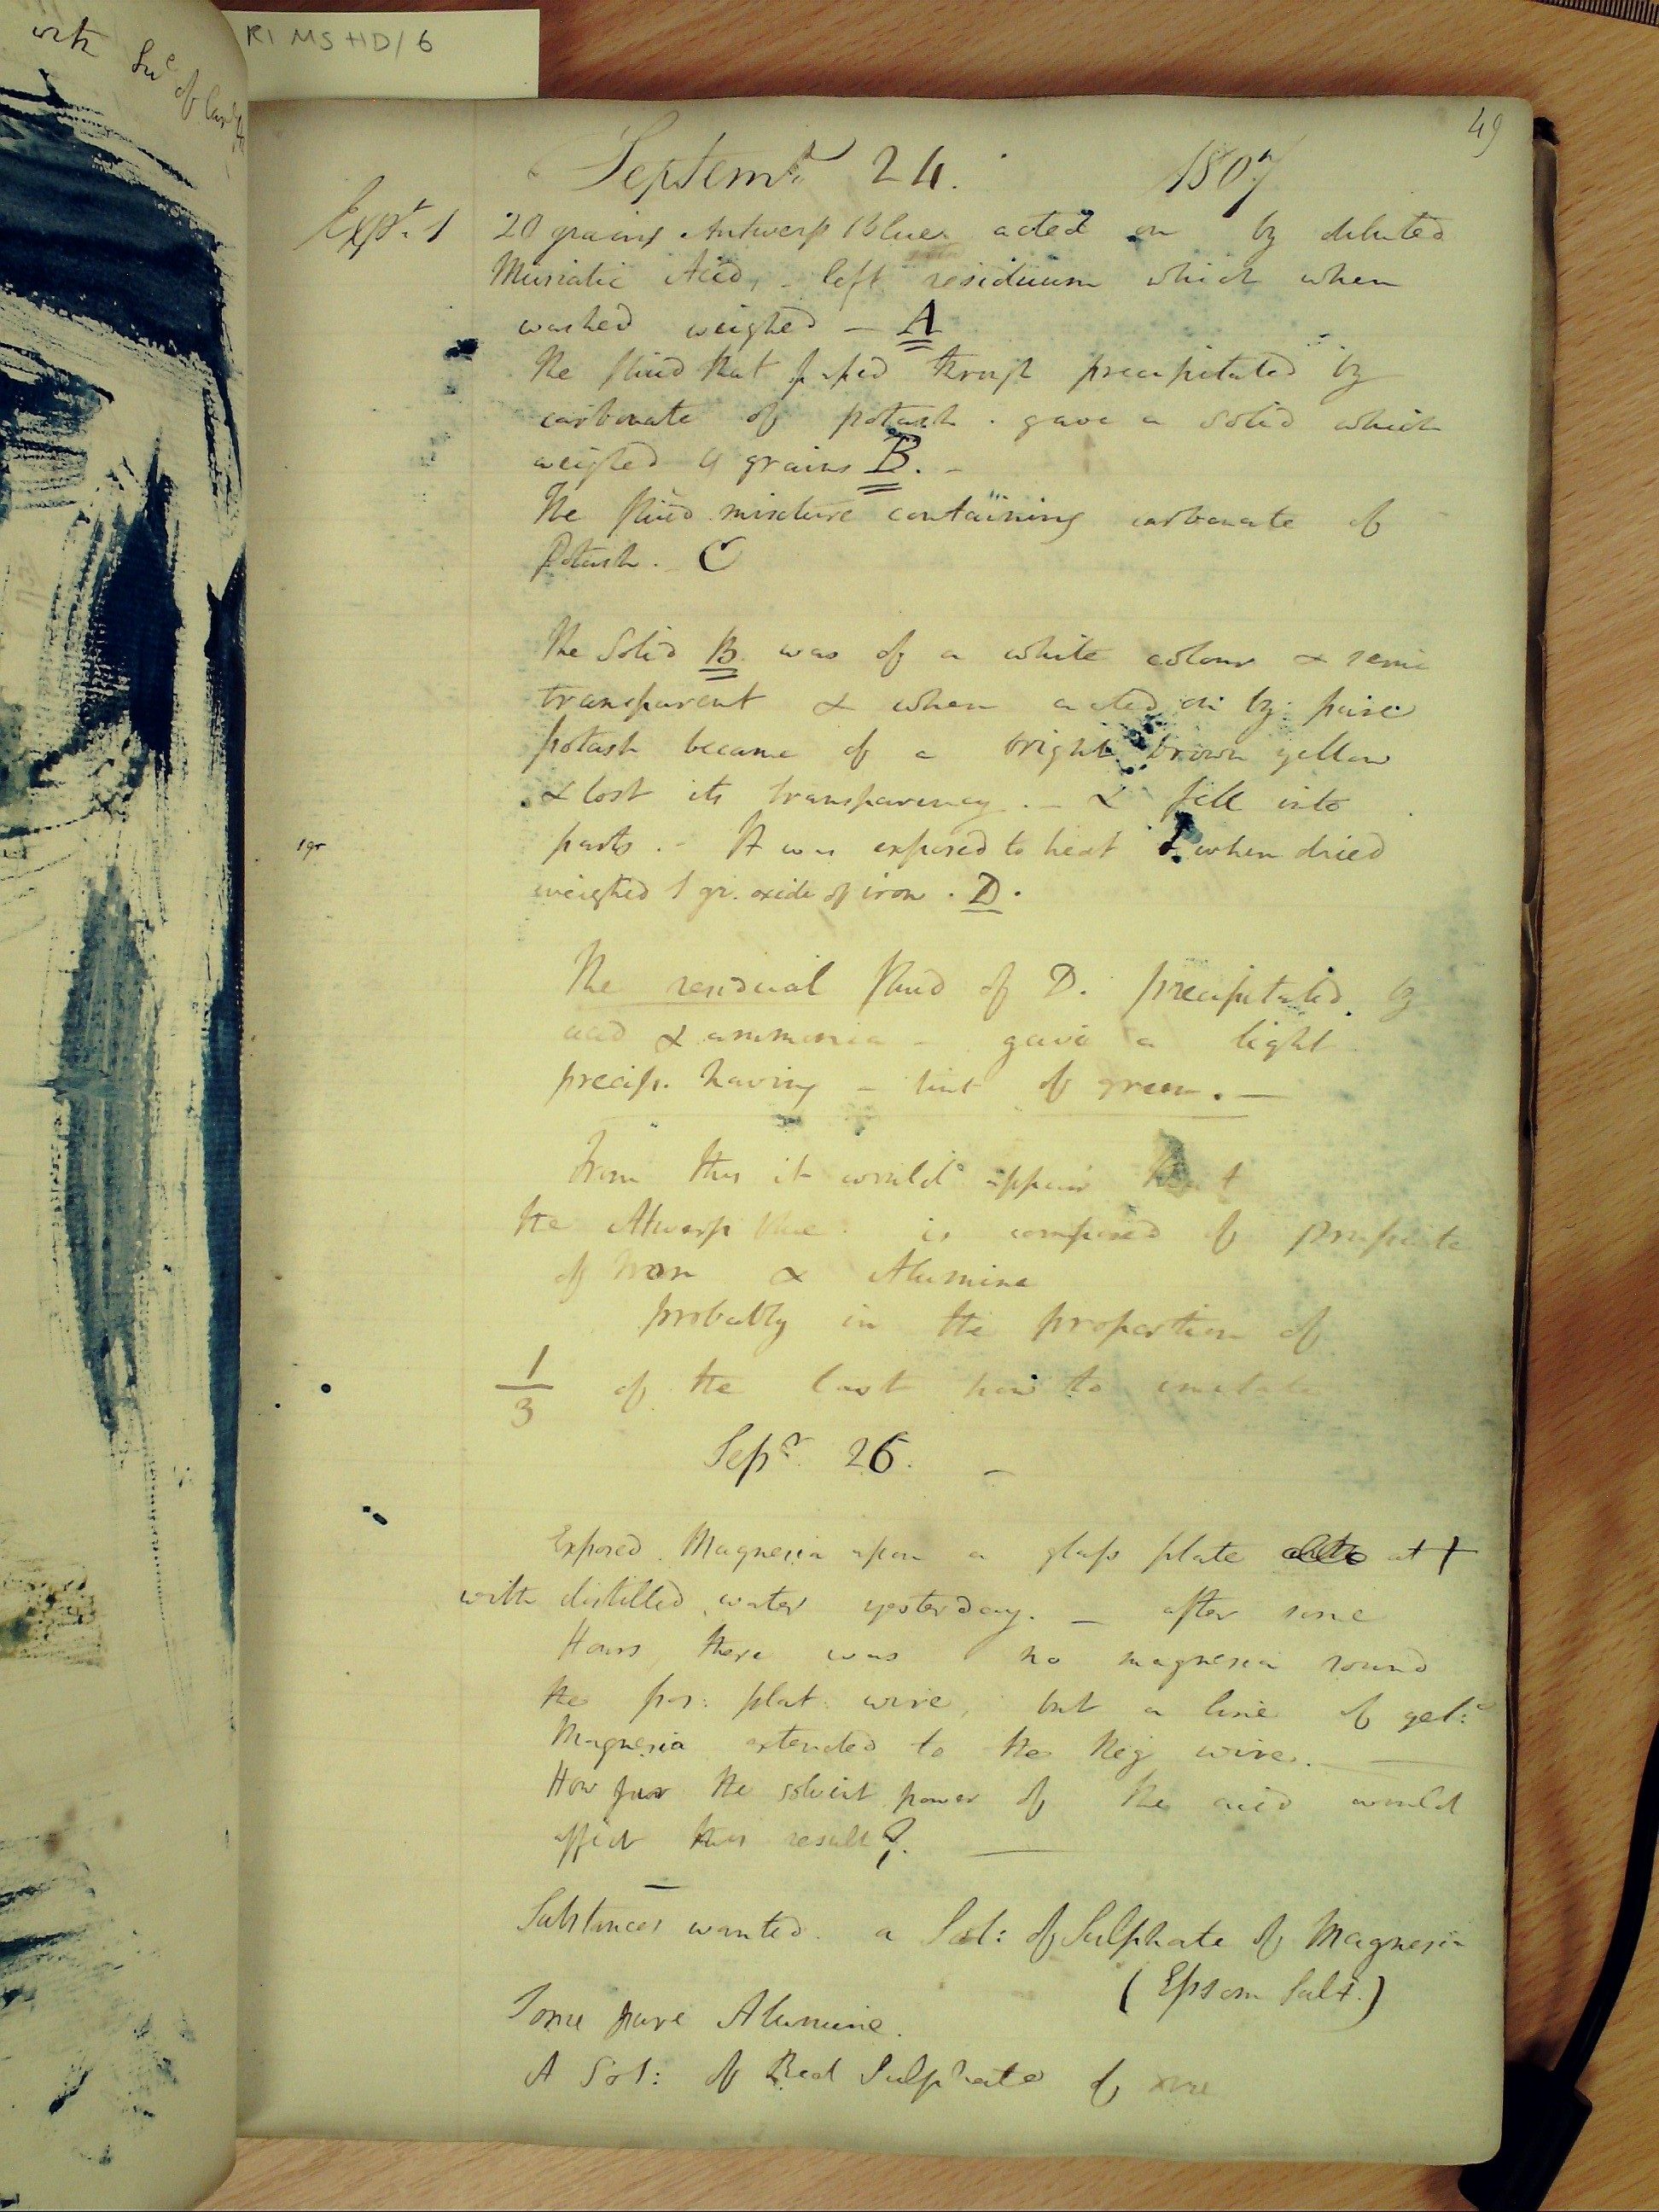 RI MS HD/6
with Sul of
49
Septemr 24. 1807
Expt. 1 20 grains Antwerp Blue acted on by diluted
Muriatic Acid, - left residuum which when
washed weighed - A
The fluid that passed through precipitated by
carbonate of potash. gave a solid which
weighed 4 grains B. -
The fluid mixture containing carbonate of
Potash. - C
The Solid B was of a white colour & semi
transparent & when acted on by pure
potash became of a bright brown yellow
& lost its transparency. - & fell into
1 gr
parts. - It was exposed to heat & when dried
weighed 1 gr. oxide of iron. D.
The residual fluid of D. precipitated by
acid & ammonia - gave a light
precip. having - tint of green. -
From this it would appear that
the Atwerp blue is composed of Prussiate
of Iron & Alumine
probably in the proportion of
1/3 of the last how to imitate
Sepr. 26. -
Exposed Magnesia upon a glass plate at +
with distilled water yesterday. - after some
Hours there was no magnesia round
the pos: plat: wire, but a line of gel:
Magnesia extended to the Neg wire. -
How far the solvent power of the acid would
affect this result?. -
Substances wanted. a Sol: of Sulphate of Magnesia
(Epsom Salt.)
Some pure Alumine.
A Sol: of Red Sulphate of